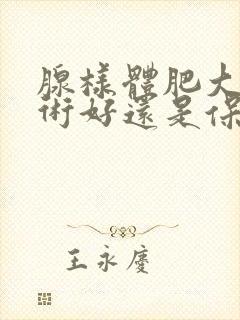 腺樣體肥大
術好還是保
王永慶